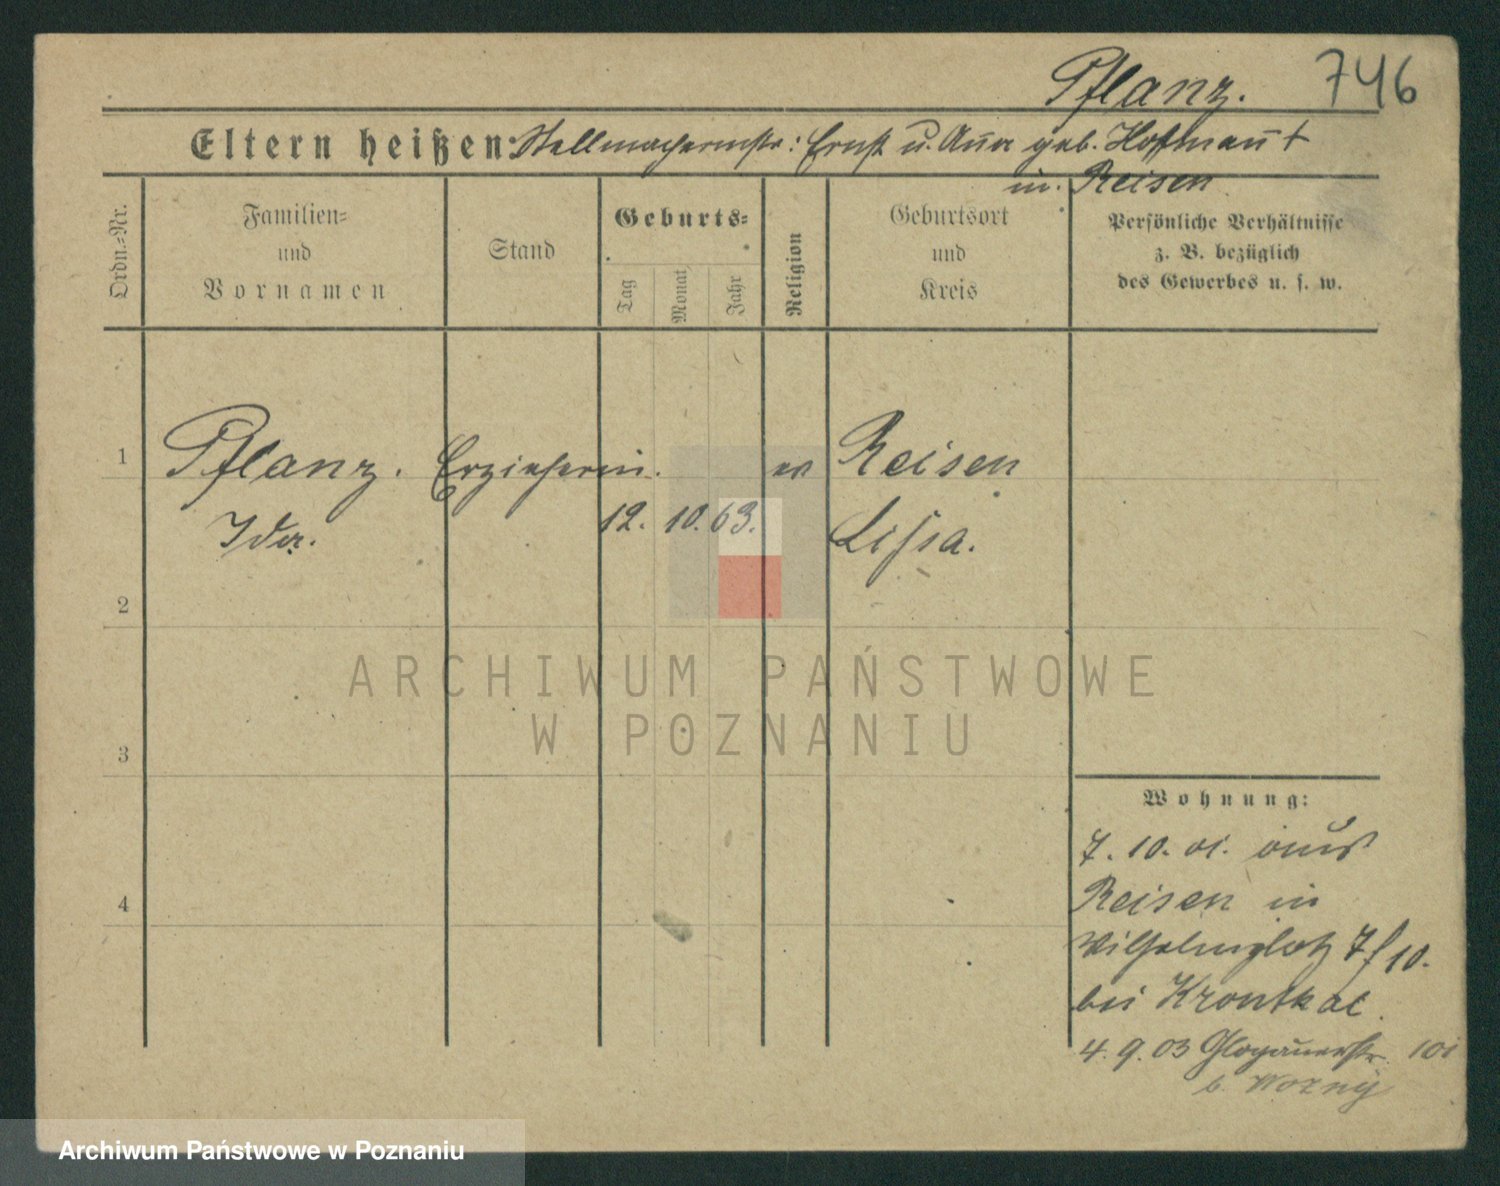 Pflanz.
746
Eltern heißen: Stellmachermstr: Ernst u. Anna geb. Hofmann †
in. Reisen
Ordn.=Nr.
Familien=
und
Vornamen
Stand
Geburts=
Tag
Monat
Jahr
Religion
Geburtsort
und
Kreis
Persönliche Verhältnisse
z. B. bezüglich
des Gewerbes u. s. w.
1
Pflanz. Erzieherin. ev Reisen
Ida. 12. 10. 63. Lissa.
2
ARCHIWUM PAŃSTWOWE
W POZNANIU
3
Wohnung:
7. 10. 01. aus
Reisen in
4
Wilhelmplatz 7/10.
bei Kronthal.
4. 9. 03 Glogauerstr. 101
b. Wozny
Archiwum Państwowe w Poznaniu